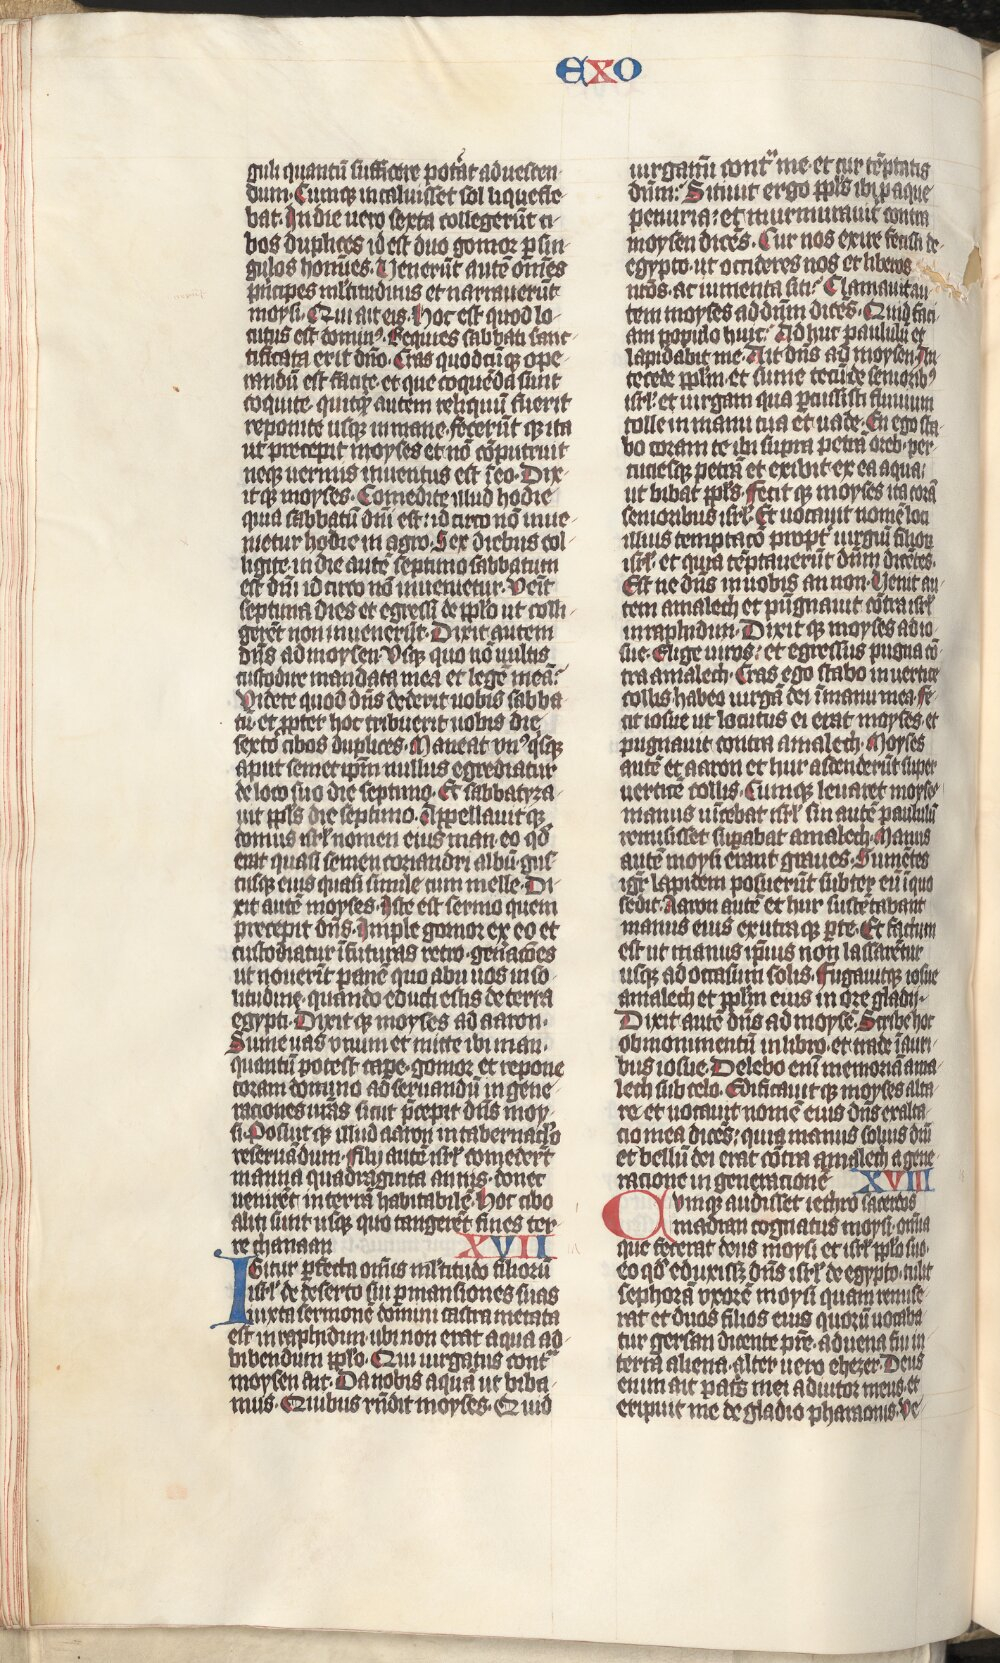 EXO
guli quantũ sufficere potãt ad uescen
dum. Cumq; incaluisset sol liquefie
bat. In die uero sexta collegerũt ci
bos duplices id est duo gomor p̲ sin
gulos homĩes. Uenerũt autẽ om̃es
pñcipes ml̃titudinis et narrauerũt
moysi. Qui ait eis. Hoc est quod lo
cutus est domin⁹. Requies sabbati sanc
tificata erit dño. Cras quodcũq; ope
randũ est facite. et que coquẽda sunt
coquite. quitq̃d autem reliquũ fuerit
reponite usq; in mane. fecerũt q; ita
ut precepit moyses et nõ cõputruit
neq; uermis inuentus est ĩ eo. Dix
it q; moyses. Comedite illud hodie
quia sabbatũ dñi est: idcirco nõ inue
nietur hodie in agro. Sex diebus col
ligite. in die autẽ septimo sabbatum
est dñi idcirco nõ inuenietur. Ueĩt
septima dies et egressi de pp̃lo ut colli
gerẽt non inuenerũt. Dixit autem
dñs ad moysen. Usq; quo nõ uultis
custodire mandata mea et legẽ meã?
Videte quod dñs dederit uobis sabba
tũ. et p̱pter hoc tribuerit uobis die
sexto cibos duplices. Maneat vn⁹ q̱sq;
aput semet ip̃m nullus egrediatur
de loco suo die septimo. Et sabbatyza
uit pp̃ls die septimo. Appellauit q;
domus isrl̃ nomen eius man. eo qd̃
erat quasi semen coriandri albũ. gus
tusq; eius quasi simile cum melle. Di
xit autẽ moyses. Iste est sermo quem
precepit dñs. Imple gomor ex eo et
custodiatur ĩ futuras retro. geñacões
ut nouerĩt panẽ quo alui uos in so
litudine. quando educti estis de terra
egypti. Dixit q; moyses ad aaron.
Sume uas vnum et mitte ibi man.
quantũ potest cap̲e. gomor et repone
coram domino ad seruandũ in gene
raciones ur̃as sicut p̃cepit dñs moy
si. Posuit q; illud aaron in tabernacl̃o
reseruãdum. filij autẽ isrl̃ comedert̃
manna quadraginta annis. donec
uenirẽt in terrã habitabilẽ. Hoc cibo
aliti sunt usq; quo tangerẽt fines ter
re chanaan XVII
Igitur p̲fecta om̃is ml̃titudo filiorũ
isrl̃ de deserto sin p̲ mansiones suas
iuxta sermonẽ domini castra metata
est in raphidim. ubi non erat aqua ad
bibendum pp̃lo. Qui iurgatus cont̃
moysen ait. Da nobis aquã ut biba
mus. Quibus rñdit moyses. Quid
iurgam̃ī cont̃ me. et cur tẽptatis
dñm? Sitiuit ergo pp̃ls ibi p̱ aque
penuria: et murmurauit contra
moysen dicẽs. Cur nos exire fecisti de
egypto. ut occideres nos et liberos
nr̃os. ac iumenta siti? Clamauit au
tem moyses ad dñm dicẽs. Quid faci
am populo huic? Ad huc paululũ et
lapidabit me. Ait dñs ad moysen. An
tecede pp̃lm. et sume tecũ de seniorib⁹
isrl̃. et uirgam qua p̲cussisti fluuium
tolle in manu tua et uade. En ego sta
bo coram te ibi supra petrã oreb. per
cutiesq; petrã et exibit ex ea aqua:
ut bibat pp̃ls. fecit q; moyses ita corã
senioribus isrl̃. Et uocauit nomẽ loci
illius temptacõ propt̃ iurgiũ filioꝝ
isrl̃. et quia tẽptauerũt dñm dicẽtes.
Est ne dñs in uobis an non. Uenit au
tem amalech et pũgnauit cõtra isrl̃
in raphidim. Dixit q; moyses ad io
sue. Elige uiros: et egressus pugna cõ
tra amalech. Cras ego stabo in uertice
collis. habeo uirgã dei ĩ manu mea. fe
cit iosue ut locutus ei erat moyses. et
pugnauit contra amalech. Moyses
autẽ et aaron et hur ascenderũt super
uerticẽ collis. Cumq; leuaret moyses
manus uĩcebat isrl̃. sin autẽ paululũ
remisisset sup̲abat amalech. Manus
autẽ moysi erant graues. Sumẽtes
igr̃ lapidem posuerũt subter eũ ĩ quo
sedit. Aaron autẽ et hur sustẽtabant
manus eius ex utraq; p̲te. Et factum
est ut manus ip̃ius non lassarẽtur
usq; ad occasum solis. Fugauitq; iosue
amalech et pp̃lm eius in ore gladij.
Dixit autẽ dñs ad moysẽ. Scribe hoc
ob monumentũ in libro. et trade ĩ auri
bus iosue. Delebo eni᷑ memoriã ama
lech sub celo. Edificauit q; moyses alta
re et uocauit nomẽ eius dñs exalta
cio mea dicẽs: quia manus solius dñi
et bellũ dei erat cõtra amalech a gene
racione in generacionẽ XVIII
Cumque audisset iethro sacerdos
madian cognatus moysi. om̃ia
que fecerat deus moysi et isrl̃ pp̃lo suo.
eo qd̃ eduxiss; dñs isrl̃ de egypto. tulit
sephorã vxorẽ moysi quam remise
rat et duos filios eius quorũ uocaba
tur gersan dicente pr̃e. aduena fui in
terra aliena. alter uero eliezer. Deus
enim ait patr̃s mei adiutor meus. et
eripuit me de gladio pharaonis. Ve